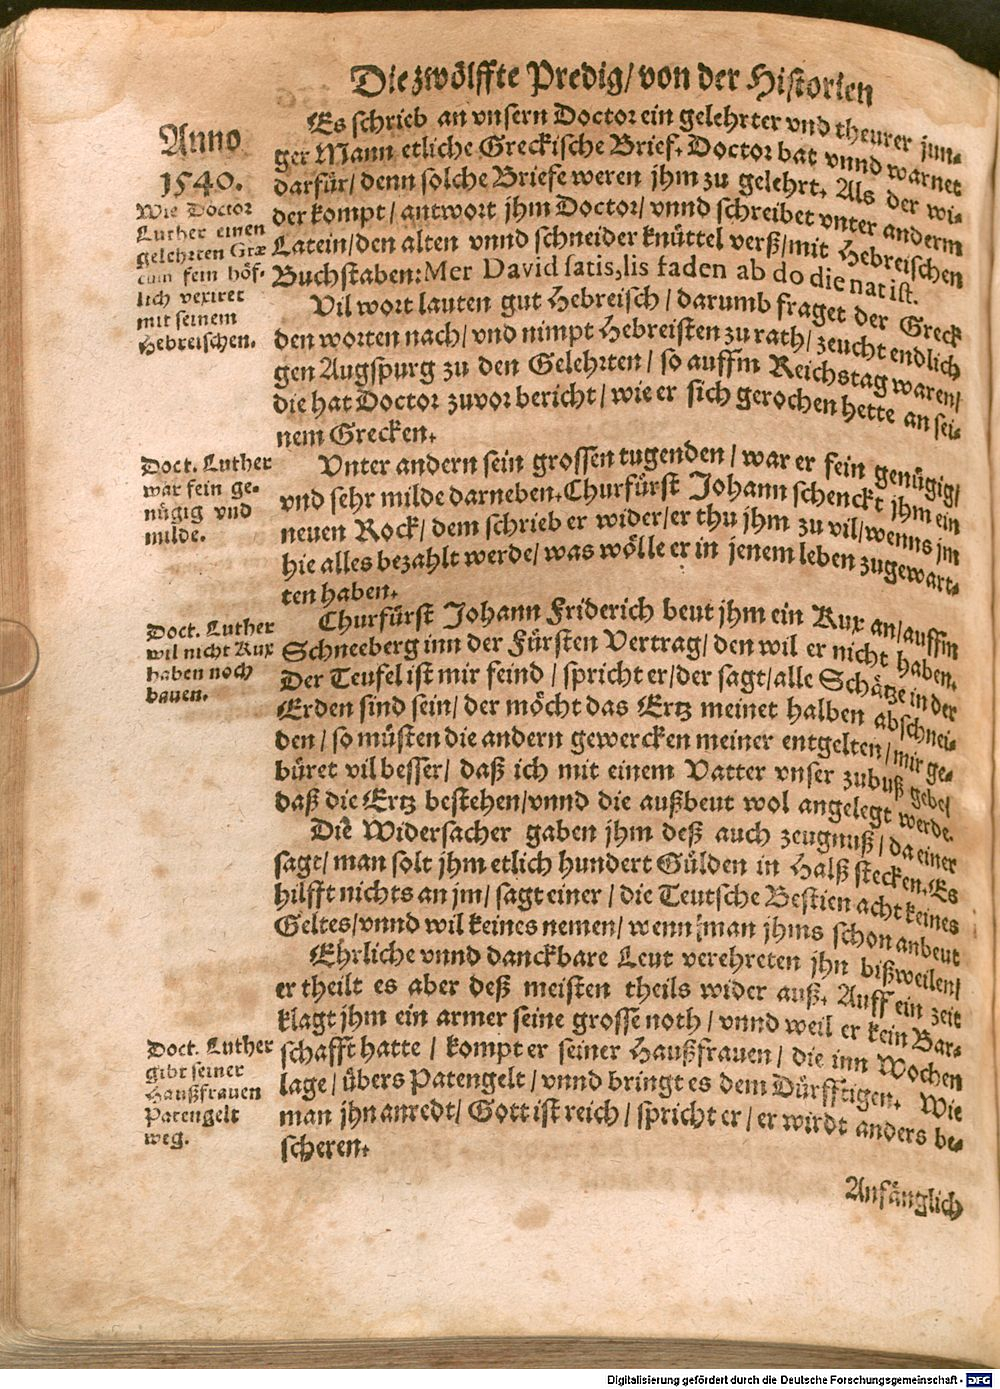 Die zwölffte Predig/ von der Historien
Anno
1540.
Wie Doctor
Luther einen
gelehrten Græ
cum fein höf-
lich vexiret
mit seinem
Hebreischen.
Es schrieb an vnsern Doctor ein gelehrter vnd theurer jun-
ger Mann etliche Greckische Brief. Doctor bat vnnd warnet
darfür/ denn solche Briefe weren jhm zu gelehrt. Als der wi-
der kompt/ antwort jhm Doctor/ vnnd schreibet vnter anderm
Latein/ den alten vnnd schneider knüttel verß/ mit Hebreischen
Buchstaben: Mer David satis, lis faden ab do die nat ist.
Vil wort lauten gut Hebreisch/ darumb fraget der Greck
den worten nach/ vnd nimpt Hebreisten zu rath/ zeucht endlich
gen Augspurg zu den Gelehrten/ so auffm Reichstag waren/
die hat Doctor zuvor bericht/ wie er sich gerochen hette an sei-
nem Grecken.
Doct. Luther
war fein ge-
nügig vnd
milde.
Vnter andern sein grossen tugenden/ war er fein genügig/
vnd sehr milde darneben. Churfürst Johann schenckt jhm ein
neuen Rock/ dem schrieb er wider/ er thu jhm zu vil/ wenns jm
hie alles bezahlt werde/ was wölle er in jenem leben zugewart-
ten haben.
Doct. Luther
wil nicht Kux
haben noch
bauen.
Churfürst Johann Friderich beut jhm ein Kux an/ auffm
Schneeberg inn der Fürsten Vertrag/ den wil er nicht haben.
Der Teufel ist mir feind/ spricht er/ der sagt/ alle Schätze in der
Erden sind sein/ der möcht das Ertz meinet halben abschnei-
den/ so müsten die andern gewercken meiner entgelten/ mir ge-
büret vil besser/ daß ich mit einem Vatter vnser zubuß gebe/
daß die Ertz bestehen/ vnnd die außbeut wol angelegt werde.
Die Widersacher gaben jhm deß auch zeugnuß/ da einer
sagt/ man solt jhm etlich hundert Gülden in Halß stecken. Es
hilfft nichts an jm/ sagt einer/ die Teutsche Bestien acht keines
Geltes/ vnnd wil keines nemen/ wenn man jhms schon anbeut
Ehrliche vnnd danckbare Leut verehreten jhn bißweilen/
er theilt es aber deß meisten theils wider auß. Auff ein zeit
klagt jhm ein armer seine grosse noth/ vnnd weil er kein Bar-
schafft hatte/ kompt er seiner Haußfrauen/ die inn Wochen
lage/ übers Patengelt/ vnnd bringt es dem Dürfftigen. Wie
man jhn anredt/ Gott ist reich/ spricht er/ er wirdt anders be-
scheren.
Doct. Luther
gibt seiner
Haußfrauen
Patengelt
weg.
Anfänglich
Digitalisierung gefördert durch die Deutsche Forschungsgemeinschaft - DFG